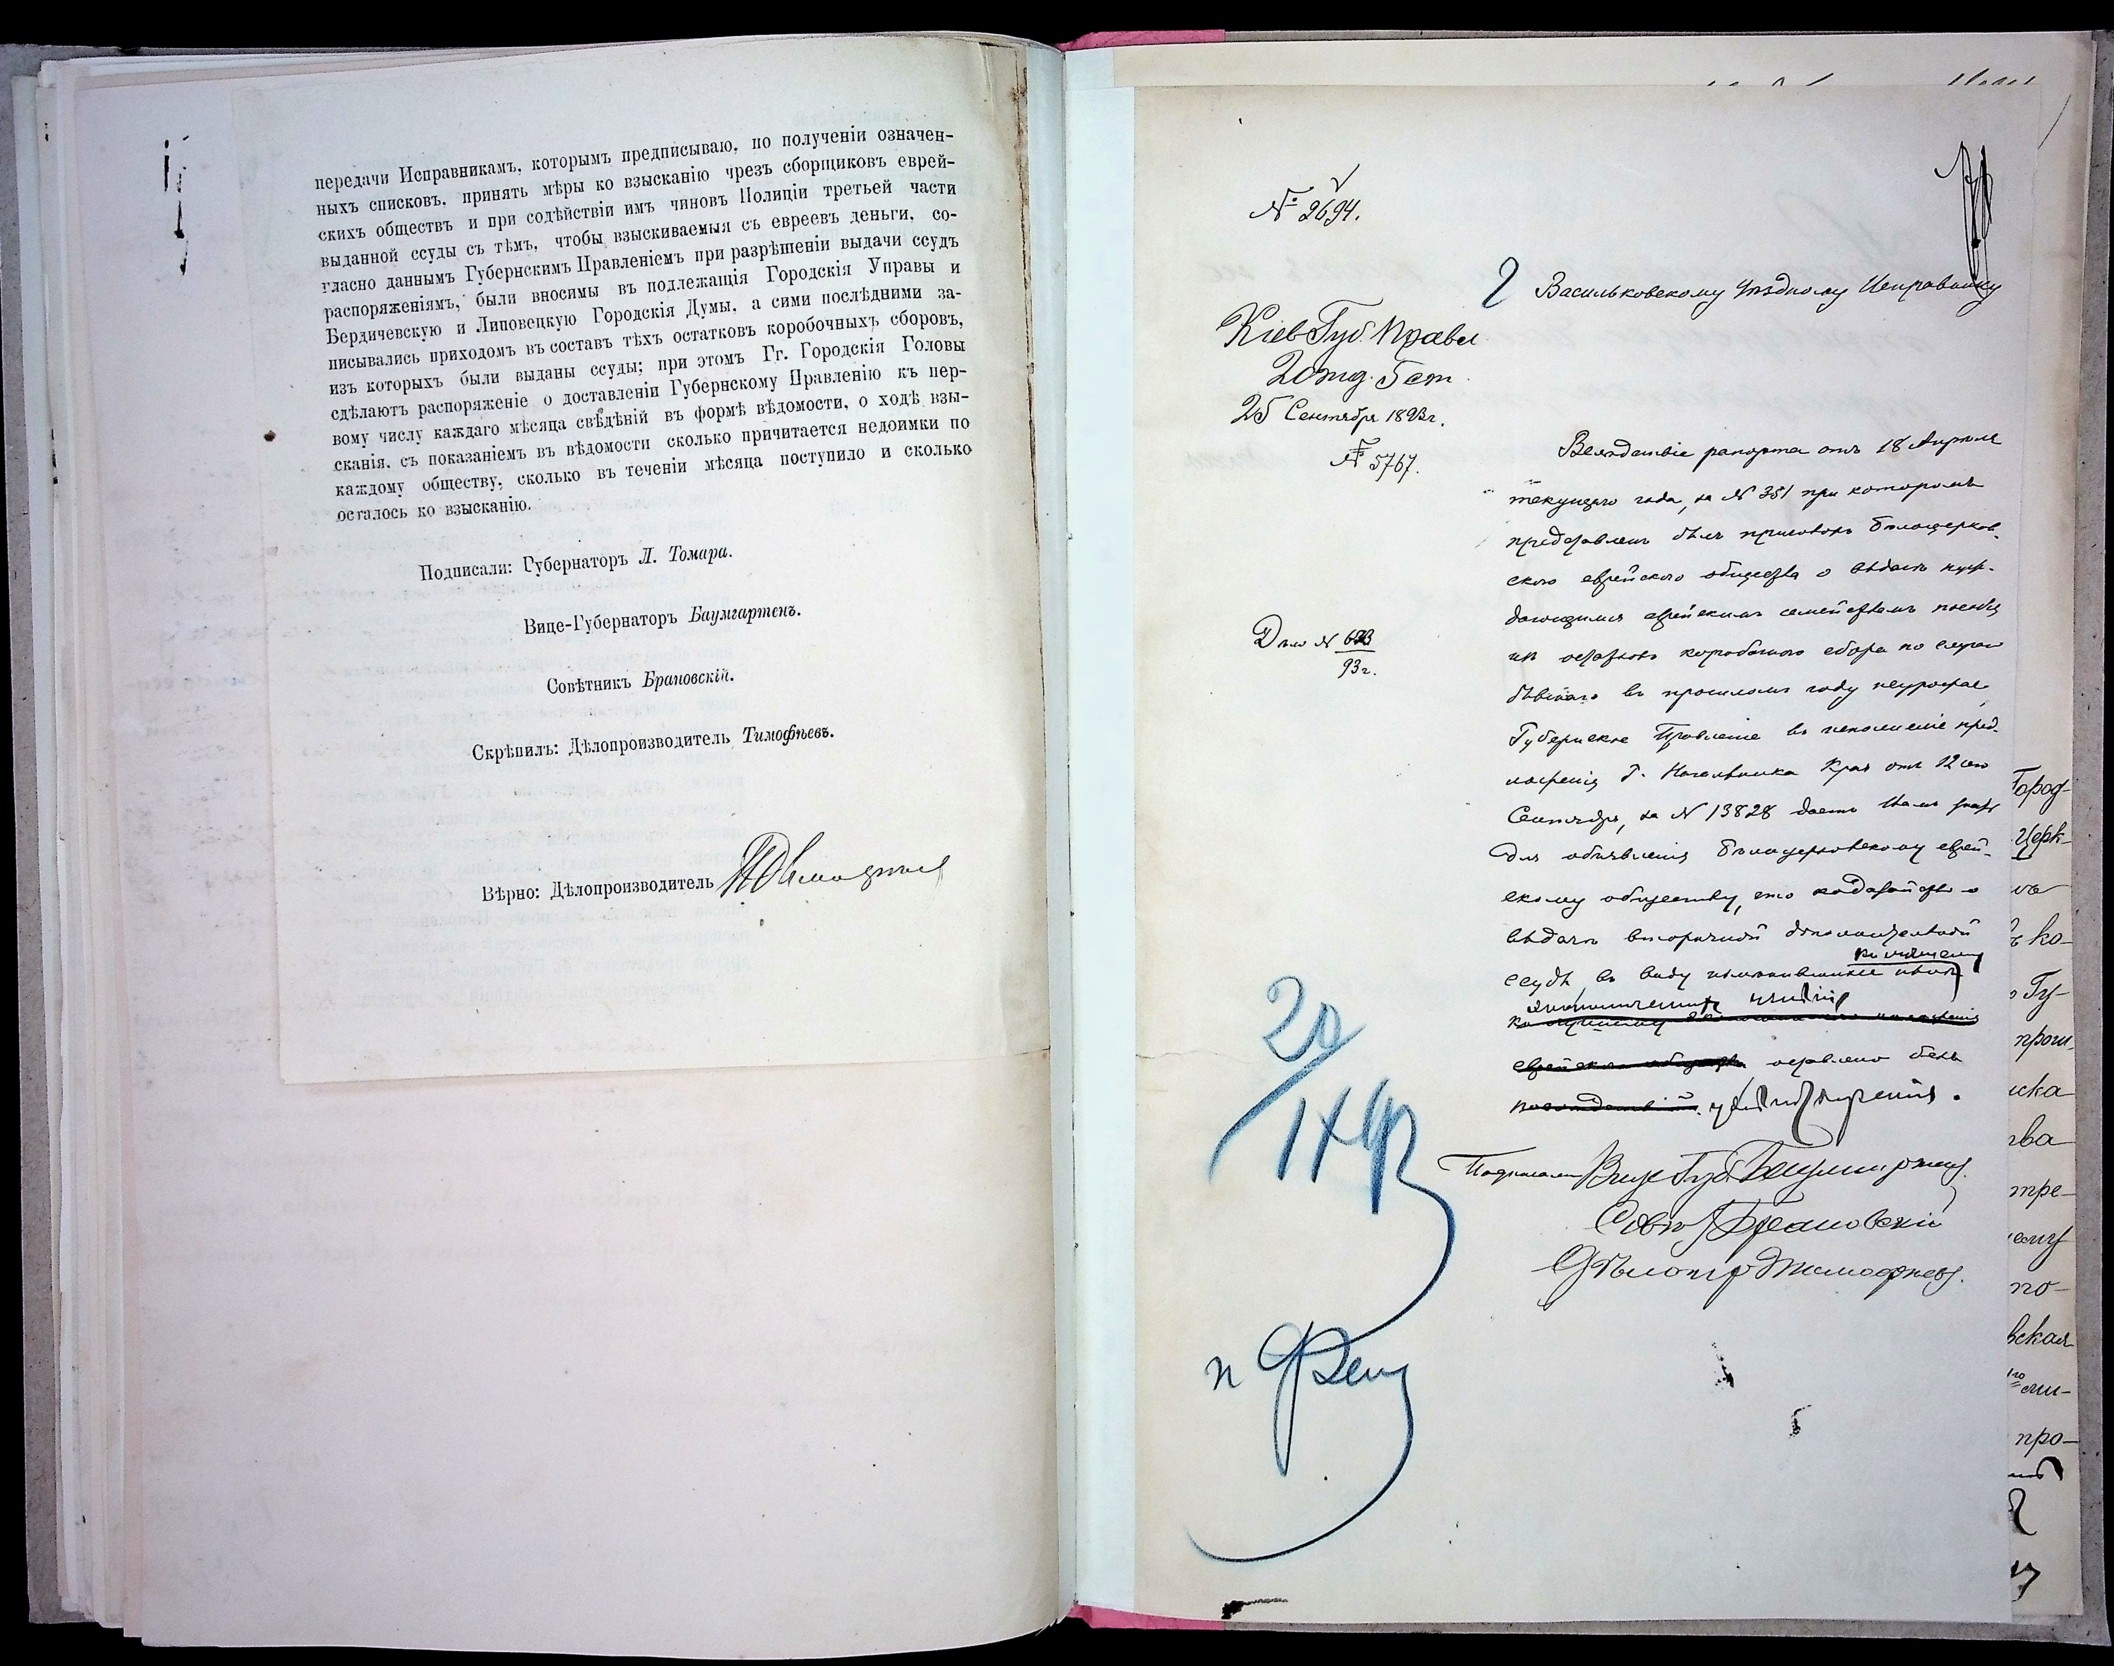 передачи Исправникамъ, которымъ предписываю, по полученіи означен-
ныхъ списковъ, принять мѣры ко взысканію чрезъ сборщиковъ еврей-
скихъ обществъ и при содѣйствіи имъ чиновъ Полиціи третьей части
выданной ссуды съ тѣмъ, чтобы взыскиваемыя съ евреевъ деньги, со-
гласно даннымъ Губернскимъ Правленіемъ при разрѣшеніи выдачи ссудъ
распоряженіямъ, были вносимы въ подлежащія Городскія Управы и
Бердичевскую и Липовецкую Городскія Думы, а сими послѣдними за-
писывались приходомъ въ составъ тѣхъ остатковъ коробочныхъ сборовъ,
изъ которыхъ были выданы ссуды; при этомъ Гг. Городскія Головы
сдѣлаютъ распоряженіе о доставленіи Губернскому Правленію къ пер-
вому числу каждаго мѣсяца свѣдѣній въ формѣ вѣдомости, о ходѣ взы-
сканія, съ показаніемъ въ вѣдомости сколько причитается недоимки по
каждому обществу, сколько въ теченіи мѣсяца поступило и сколько
осталось ко взысканію.
Подписали: Губернаторъ Л. Томара.
Вице-Губернаторъ Баумгартенъ.
Совѣтникъ Брановскій.
Скрѣпилъ: Дѣлопроизводитель Тимофѣевъ.
Вѣрно: Дѣлопроизводитель
№ 2694.
Васильковскому Уѣздному Исправнику
Кіев Губ. Правл
2 отд. 5 ст.
25 Сентября 1893 г.
№ 5767.
Дѣло №
93 г.
Вслѣдствіе рапорта отъ 18 Апрѣля
текущаго года, за № 381 при которомъ
представленъ былъ приговоръ Бѣлоцерков-
скаго еврейскаго общества о выдачѣ нуж-
дающимся еврейскимъ семействамъ пособія
изъ остатковъ коробочнаго сбора по случаю
бывшаго въ прошломъ году неурожая,
Губернское Правленіе въ исполненіе пред-
ложенія Г. Начальника Края отъ 12 сего
Сентября, за № 13828 даетъ Вамъ знать
для объявленія Бѣлоцерковскому еврей-
скому обществу, что ходатайство о
выдачѣ вторичной дополнительной
ссуды, въ виду
оставлено безъ
удовлетворенія.
Подписали Вице Губ. Баумгартенъ
Совѣт Брановскій
Дѣлопр Тимофѣевъ.
20/IX
Город-
Церк-
ко-
Гу-
ска
ва
тре-
ему
по-
вская
про-